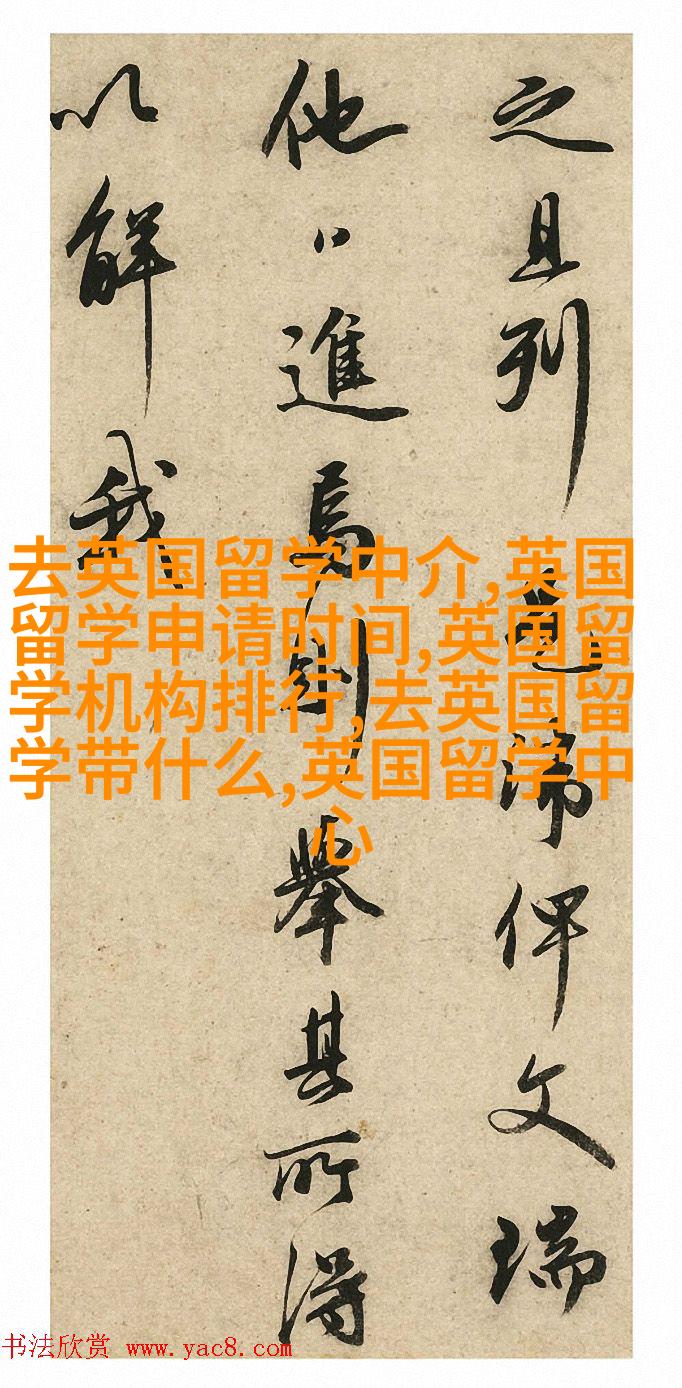 之且列
兔端俾文瑞
他日進焉則舉其所得
以解我
去英国留学中介,英国
留学申请时间,英国留
学机构排行,去英国留
学带什么,英国留学中
心
书法欣赏 www.yac8.com